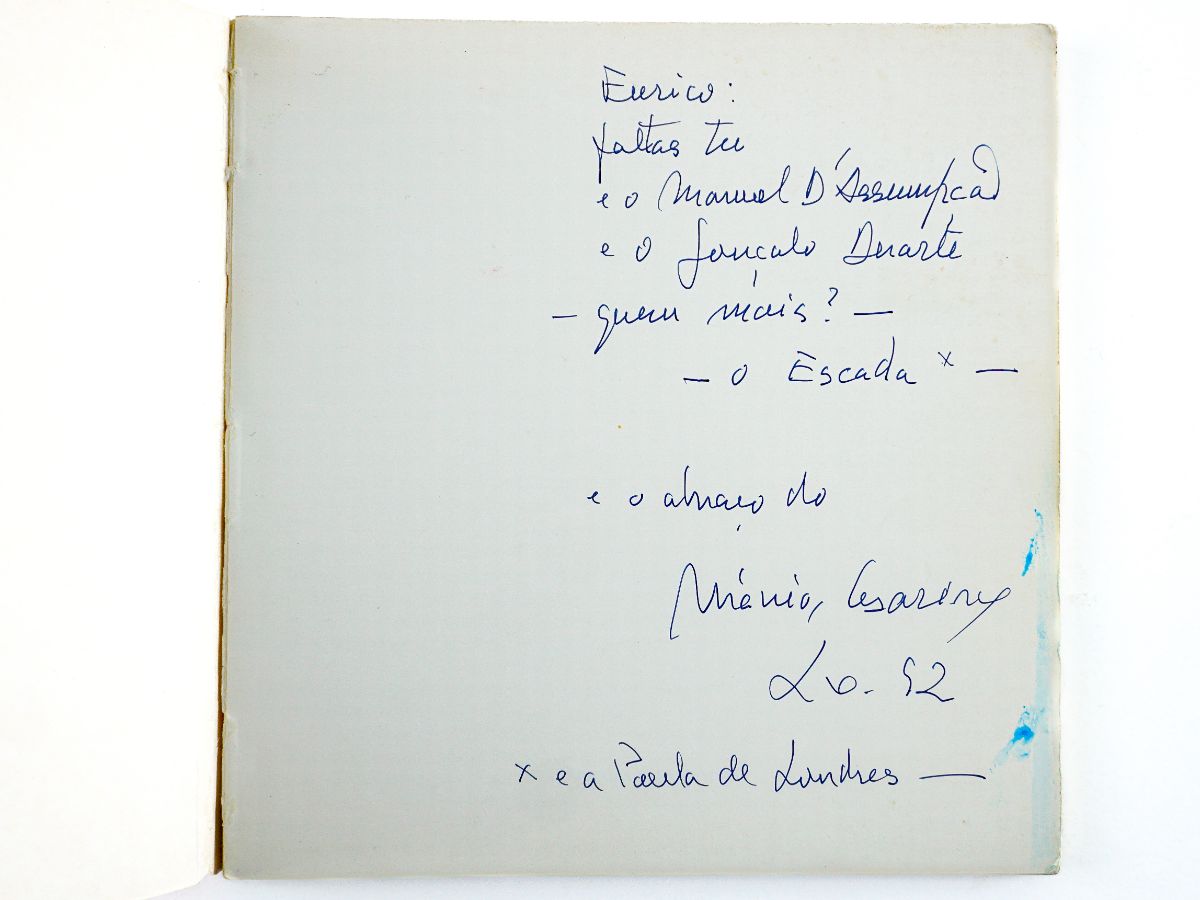 Eurico:
faltas tu
e o Manuel D'Assumpção
e o Gonçalo Duarte
— quem mais? —
— o Escada x —
e o abraço do
Mário Cesariny
Lx. 92
x e a Paula de Londres —